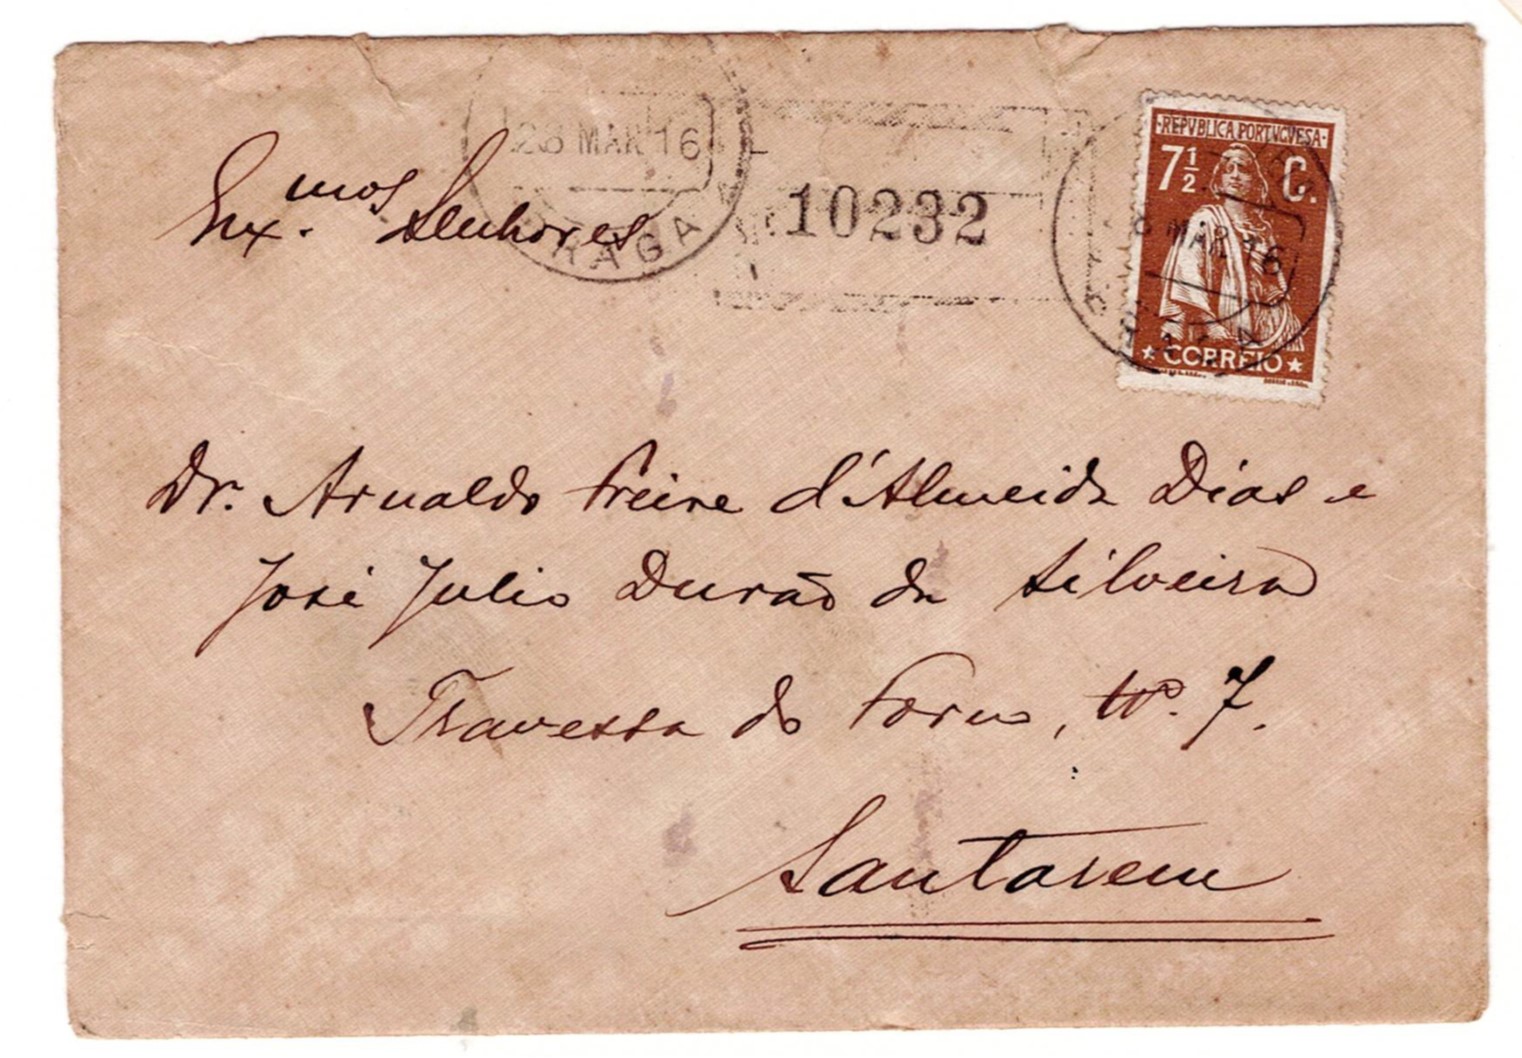 28 MAR 16
BRAGA
10232
REPVBLICA PORTVGVESA
7½ C.
MAR. 16
CORREIO
Ex.mos Senhores
Dr. Arnaldo Freire d'Almeida Dias e
José Julio Durão da Silveira
Travessa do Forno, Nº. 7.
Santarem